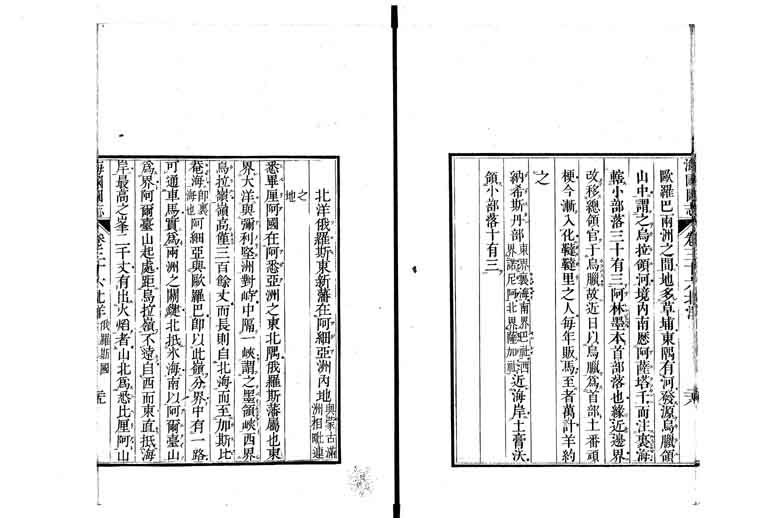 歐羅巴兩洲之間地多草埔東隅有河發源烏臘領
山中謂之烏拉領河境內南歷阿薩塔干而注裏海
轄小部落三十有三阿林墨本首部落也緣近邊界
改移總領官于烏臘故近日以烏臘為首部土番頑
梗今漸入化韃韃里之人每年販馬至者萬計羊約
之
納希斯丹部東界裏海南界巴社洒界諾尼阿北界薩加社近海岸土膏沃
領小部落十有三
海國圖志
北洋俄羅斯東新藩在阿細亞洲內地與蒙古滿洲相毗連
之地
悉畢厘阿國在阿悉亞洲之東北隅俄羅斯藩屬也東
界大洋與彌利堅洲對峙中隔一峽謂之墨領峽西界
烏拉嶺嶺高僅三百餘丈而長則自北海而至加斯比
菴海即裏海也阿細亞與歐羅巴即以此嶺分界中有一路
可通車馬實為兩洲之關鍵北抵氷海南以阿爾臺山
為界阿爾臺山起處距烏拉嶺不遠自西而東直抵海
岸最高之峯二千丈有出火焰者山北為悉比厘阿山
海國圖志 卷三十六北洋 俄羅斯國